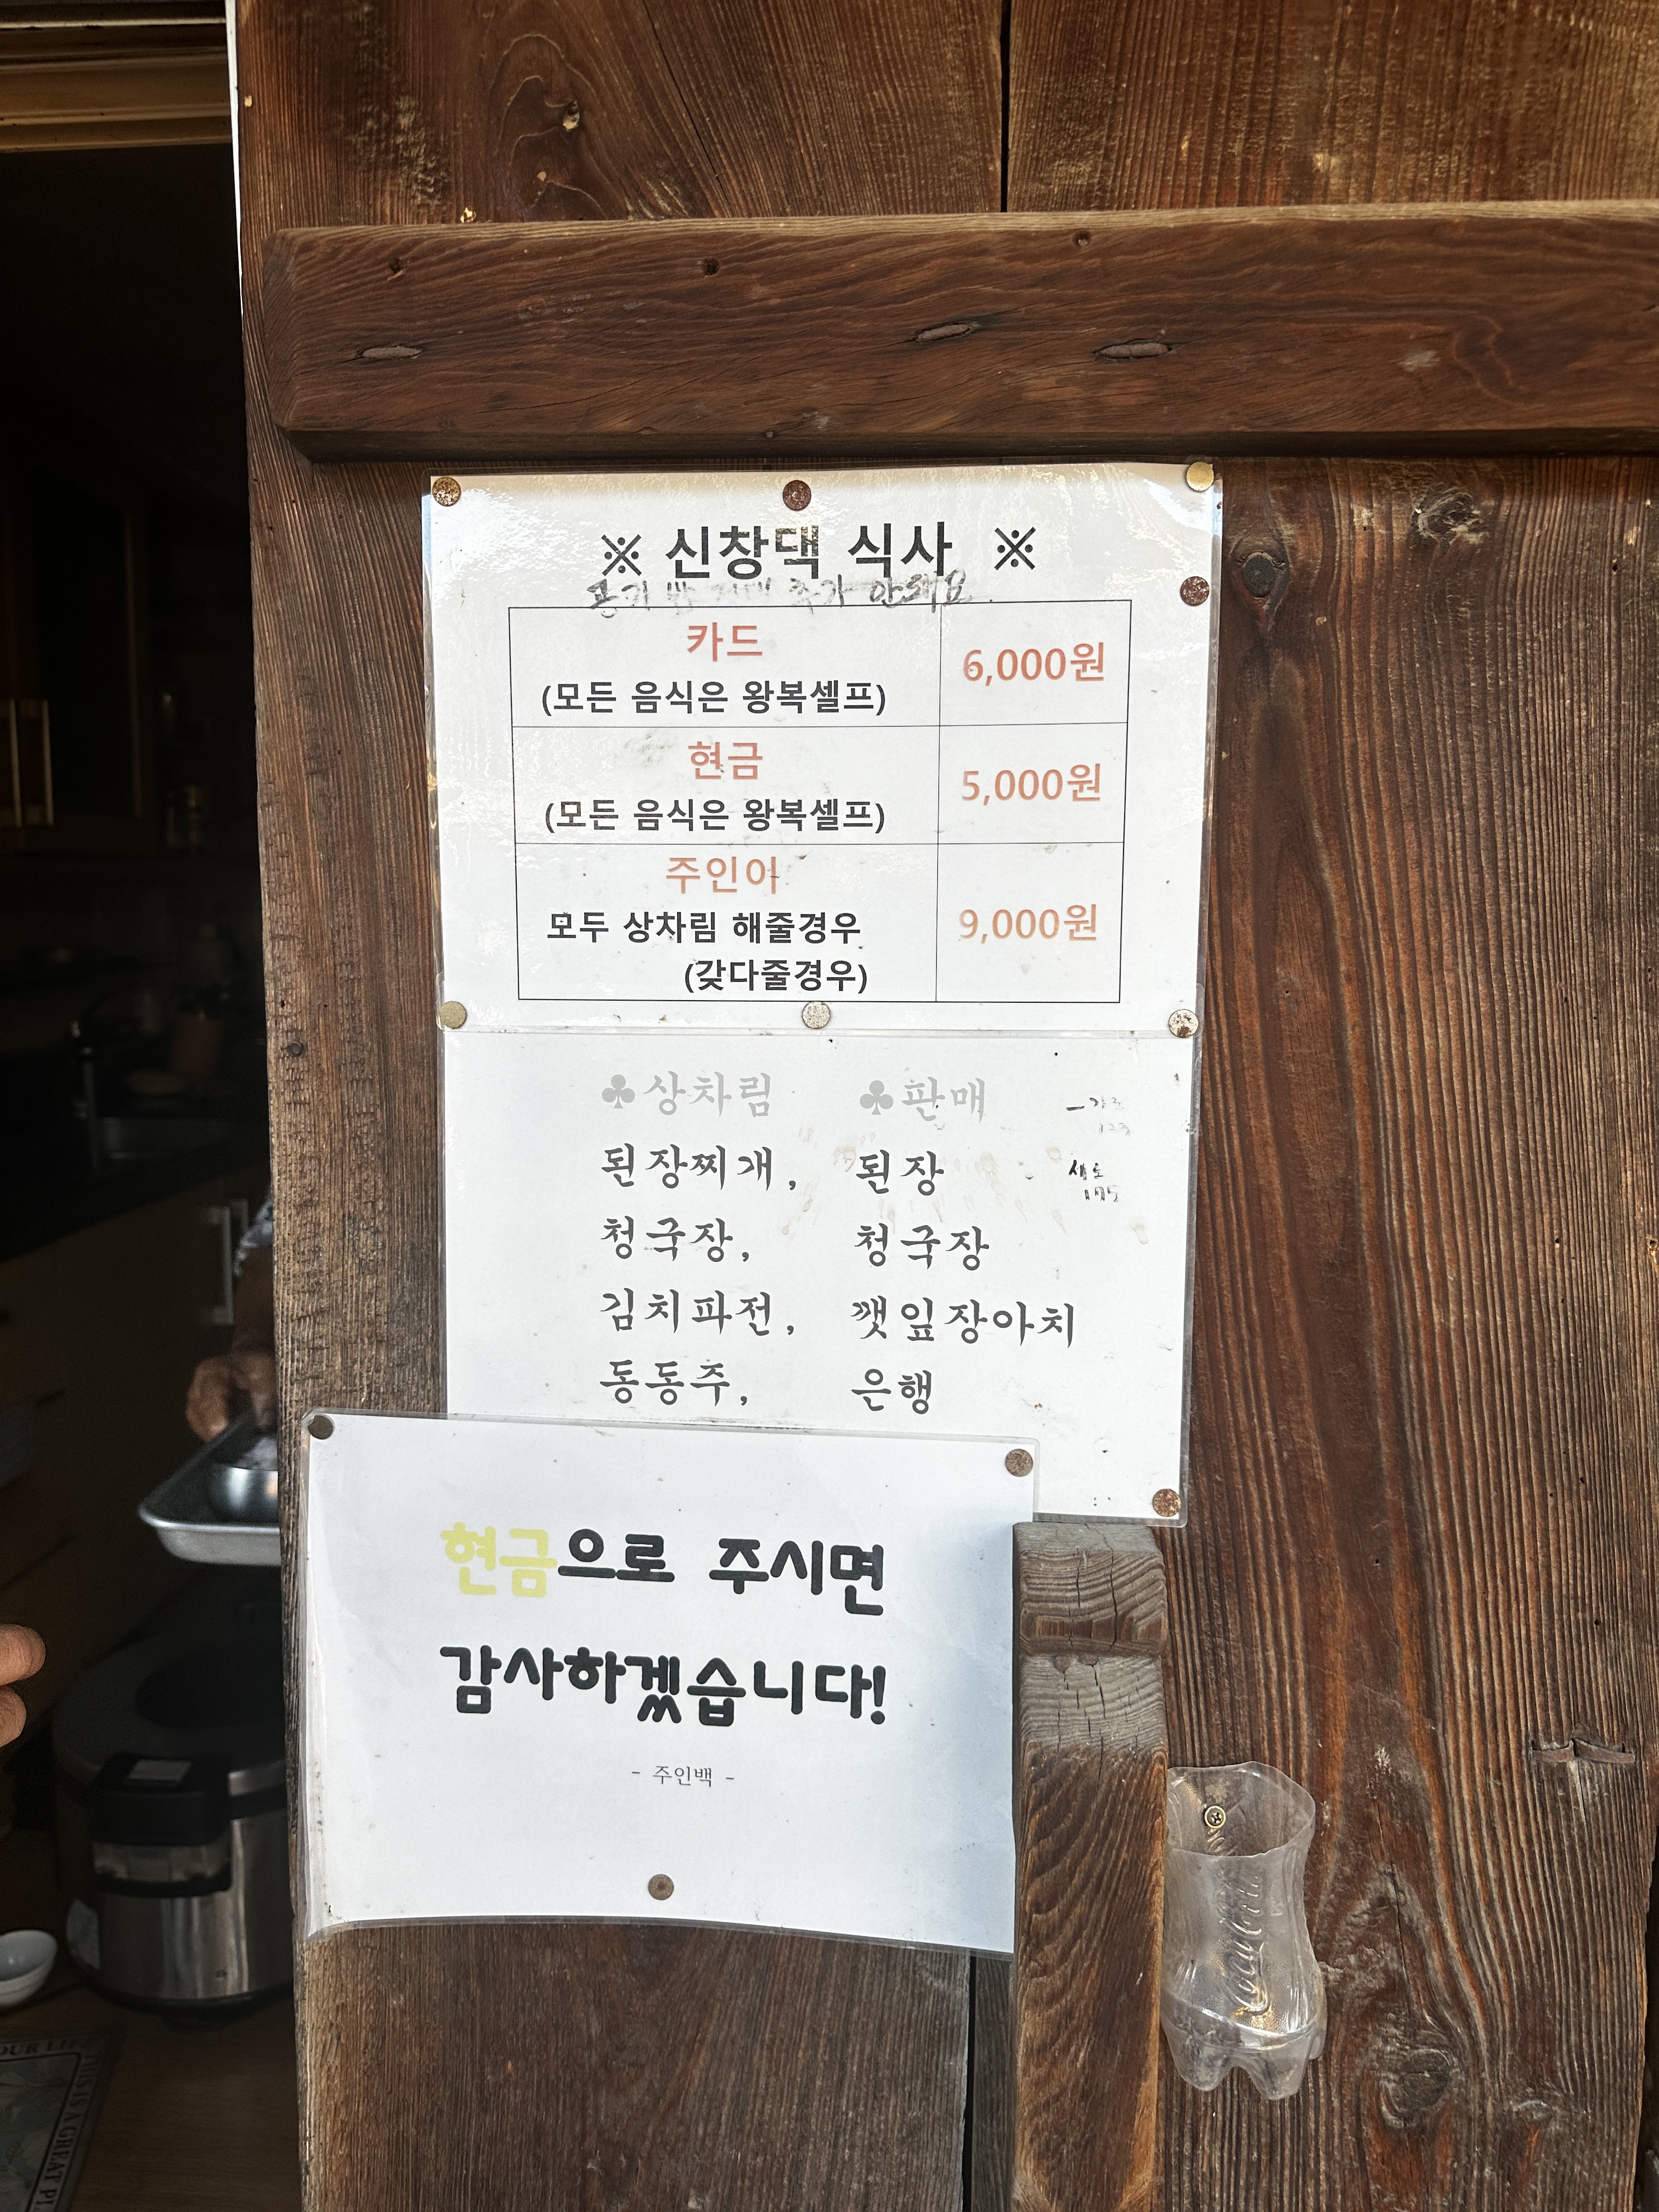 ※ 신창댁 식사 ※
공기 밥 추가 안돼요
카드
(모든 음식은 왕복셀프)
6,000원
현금
(모든 음식은 왕복셀프)
5,000원
주인이
모두 상차림 해줄경우
(갖다줄경우)
9,000원
♣상차림 ♣판매
된장찌개, 된장
청국장, 청국장
김치파전, 깻잎장아치
동동주, 은행
현금으로 주시면
감사하겠습니다!
- 주인백 -
Coca-Cola
THIS IS A GREAT